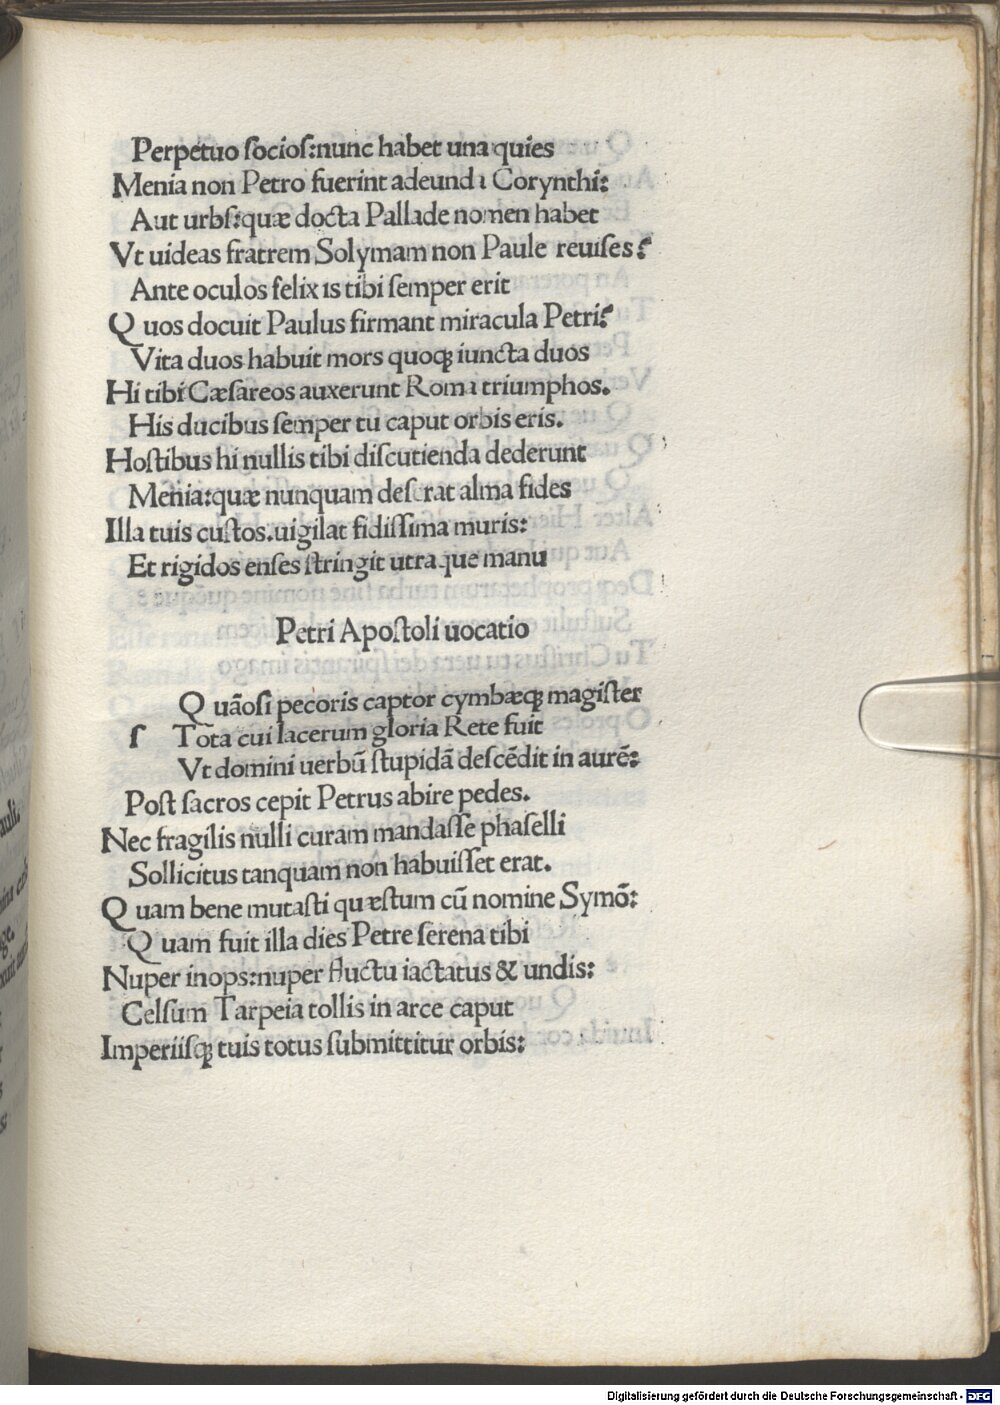 Perpetuo socioſ:nunc habet una quies
Menia non Petro fuerint adeunda Corynthi:
Aut urbſ:quæ docta Pallade nomen habet
Vt uideas fratrem Solymam non Paule reuiſes?
Ante oculos felix is tibi ſemper erit
Quos docuit Paulus firmant miracula Petri?
Vita duos habuit mors quoqꝫ iuncta duos
Hi tibi Cæſareos auxerunt Roma triumphos.
His ducibus ſemper tu caput orbis eris.
Hoſtibus hi nullis tibi diſcutienda dederunt
Menia:quæ nunquam deſerat alma fides
Illa tuis cuſtos.uigilat fidiſſima muris:
Et rigidos enſes ſtringit utraque manu
Petri Apoſtoli uocatio
Quãoſi pecoris captor cymbæqꝫ magiſter
ſ Tota cui lacerum gloria Rete fuit
Vt domini uerbũ ſtupidã deſcẽdit in aurẽ:
Poſt ſacros cepit Petrus abire pedes.
Nec fragilis nulli curam mandaſſe phaſelli
Sollicitus tanquam non habuiſſet erat.
Quam bene mutaſti quæſtum cũ nomine Symõ:
Quam fuit illa dies Petre ſerena tibi
Nuper inops:nuper fluctu iactatus & undis:
Celſum Tarpeia tollis in arce caput
Imperiiſqꝫ tuis totus ſubmittitur orbis:
Digitalisierung gefördert durch die Deutsche Forschungsgemeinschaft - DFG